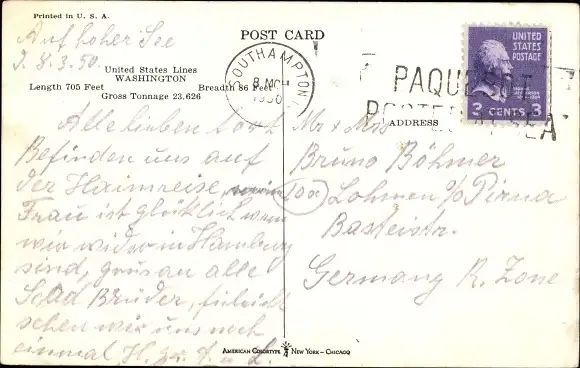 Printed in U. S. A.
Auf hoher See
d. 8.3.50.
United States Lines
WASHINGTON
Length 705 Feet Breadth 86 Feet
Gross Tonnage 23,626
Alle lieben dort
Befinden uns auf
der Haimreise, meine
Frau ist glücklich wenn
wir wider in Hamburg
sind, grüs an alle
Scad Brüder, fileicht
sehen wir uns noch
einmal
POST CARD
SOUTHAMPTON
8 MCH
1950
PAQUEBOT
POSTED AT SEA
UNITED
STATES
POSTAGE
3 CENTS 3
ADDRESS
Mr & Mrs
Bruno Böhmer
10a Lohmen b/Pirna
Basteistr.
Germany R. Zone
AMERICAN COLORTYPE NEW YORK - CHICAGO